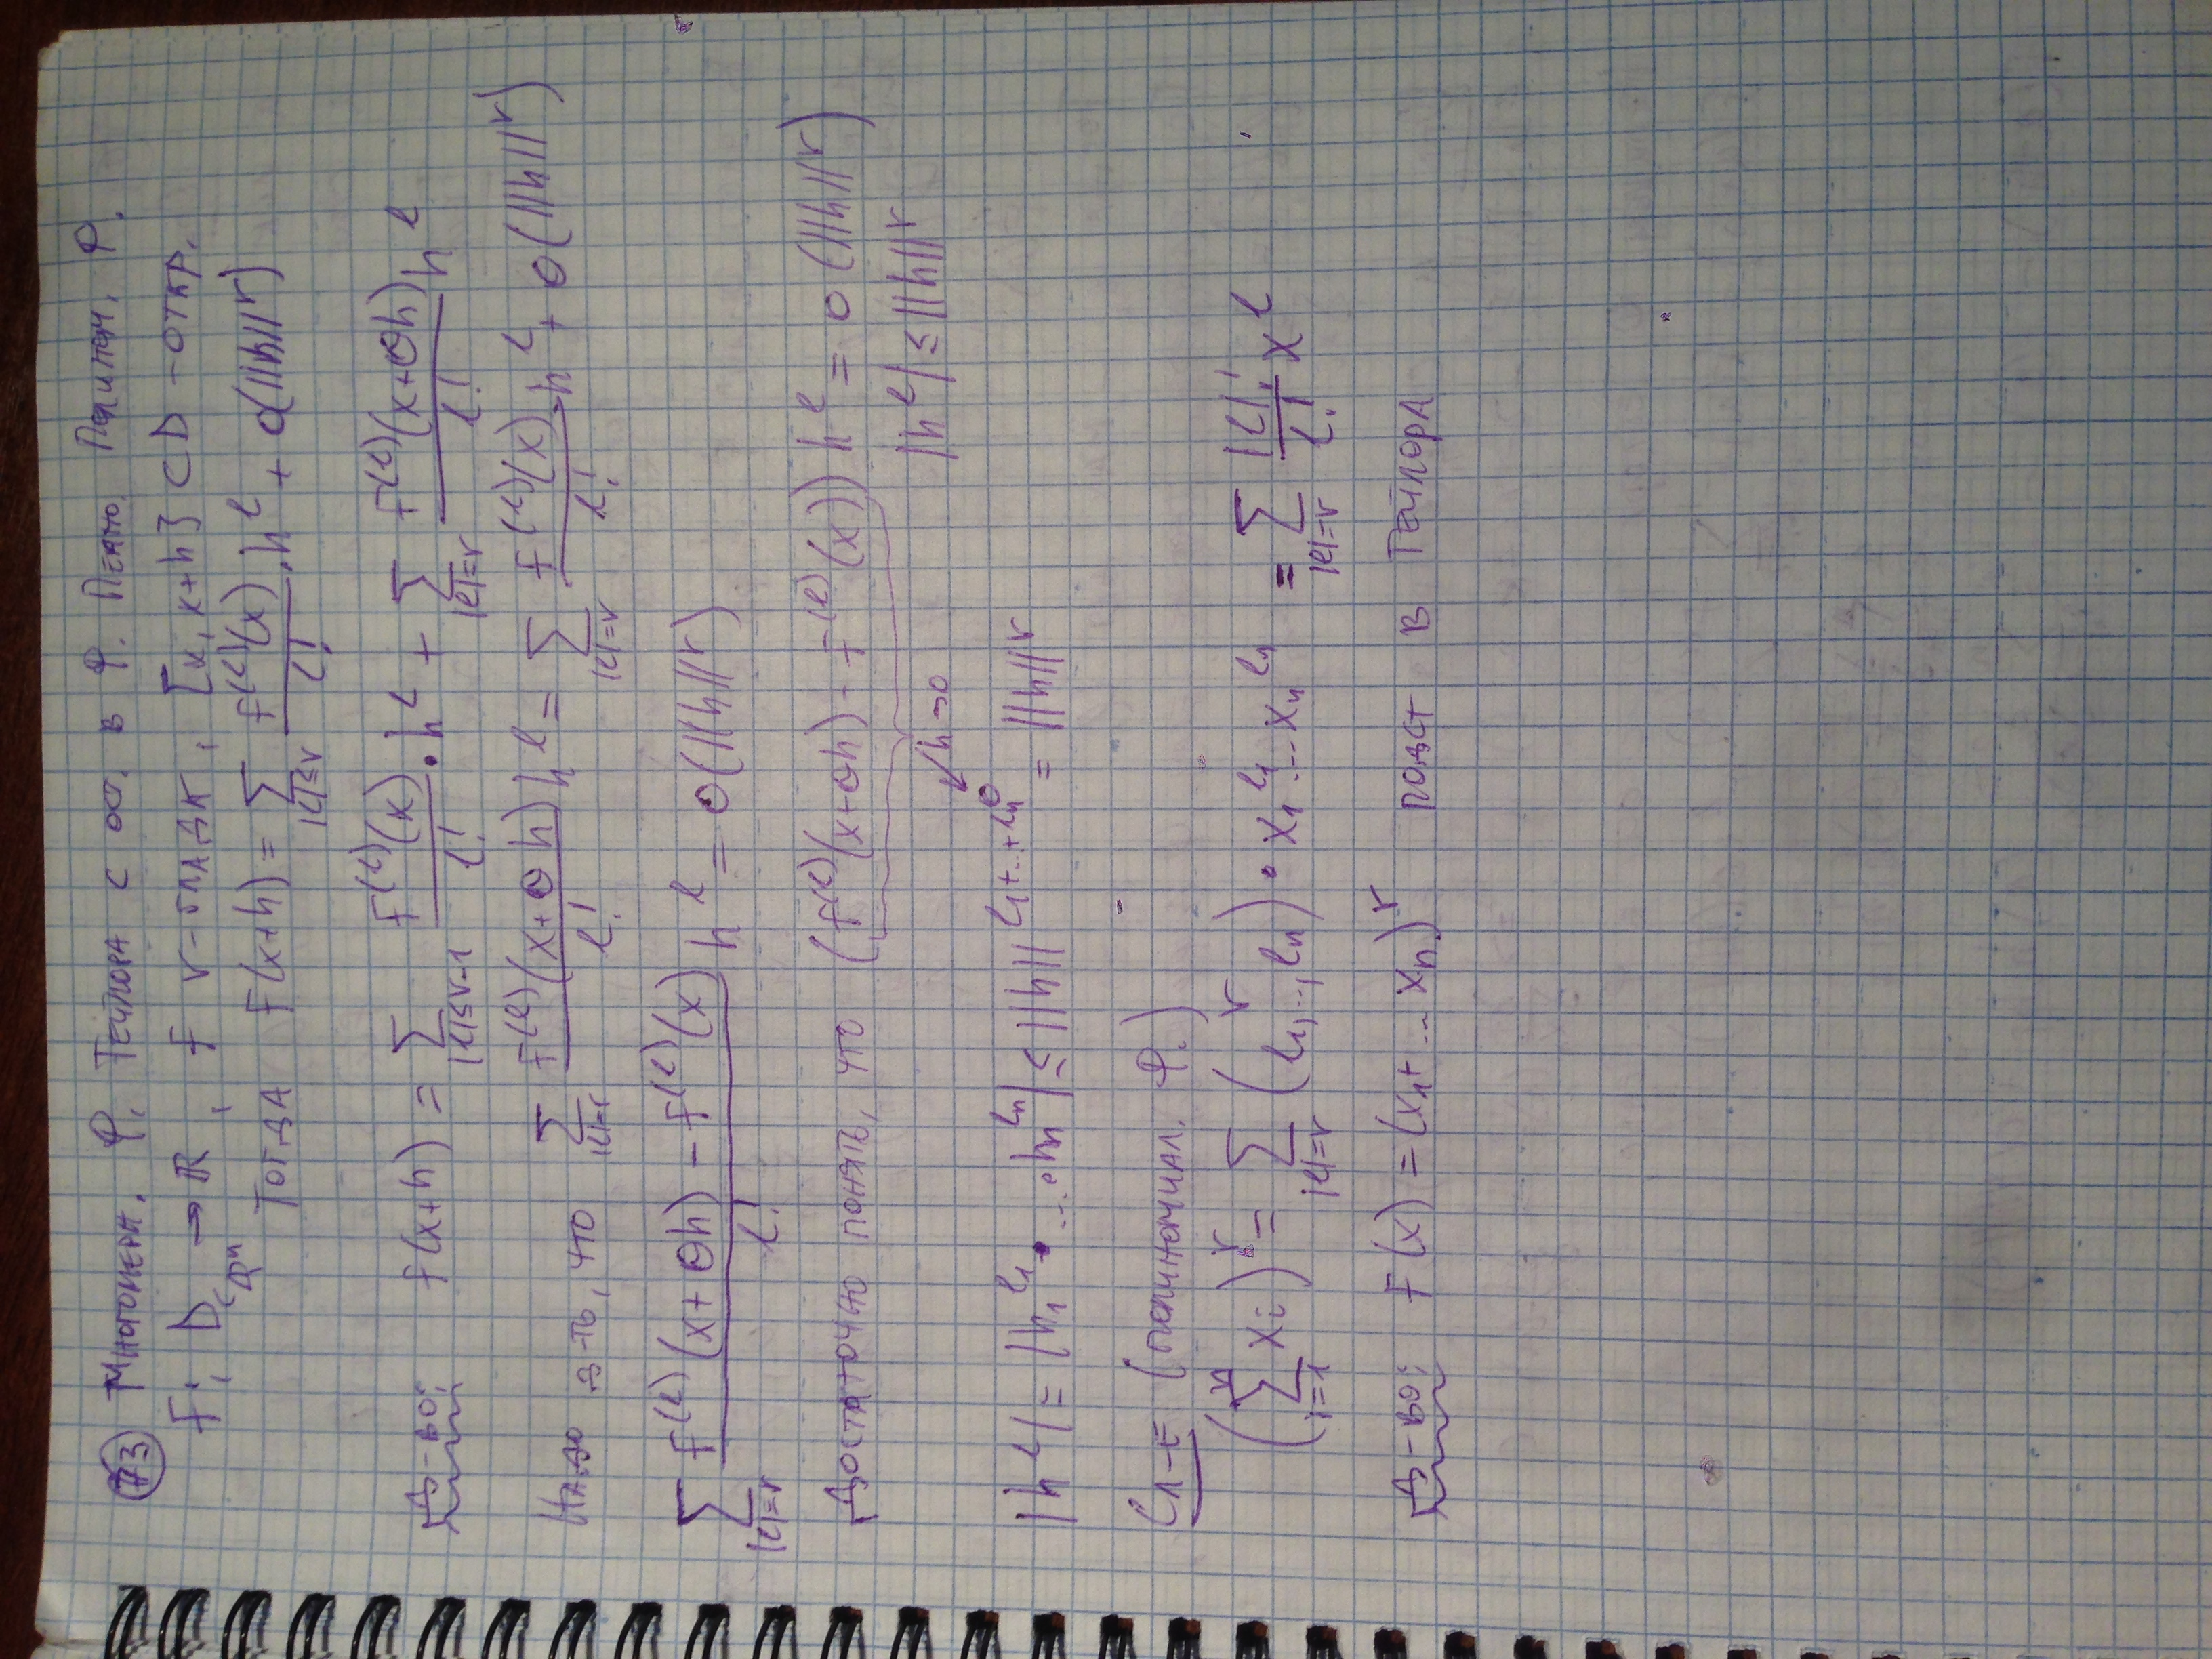 73 Многомерн. Ф. Тейлора с ост. в Ф. Пеано. Полином. Ф.
f: D ⊂ ℝⁿ → ℝ, f r-гладк, [x, x+h] ⊂ D - откр.
Тогда f(x+h) = ∑_{|l|≤r} f^{(l)}(x)/l! · h^l + o(||h||^r)
Д-во: f(x+h) = ∑_{|l|≤r-1} f^{(l)}(x)/l! · h^l + ∑_{|l|=r} f^{(l)}(x+θh)/l! h^l
Надо д-ть, что ∑_{|l|=r} f^{(l)}(x+θh)/l! h^l = ∑_{|l|=r} f^{(l)}(x)/l! · h^l + o(||h||^r)
∑_{|l|=r} (f^{(l)}(x+θh) - f^{(l)}(x))/l! h^l = o(||h||^r)
Достаточно понять, что (f^{(l)}(x+θh) - f^{(l)}(x)) h^l = o(||h||^r)
h→0 |h^l| ≤ ||h||^r
0
|h^l| = |h_1^{l_1} · ... · h_n^{l_n}| ≤ ||h||^{l_1+...+l_n} = ||h||^r
Сл-е (полиномиал. Ф.)
(∑_{i=1}^{n} x_i)^r = ∑_{|l|=r} (r l_1,...,l_n) · x_1^{l_1} ... x_n^{l_n} = ∑_{|l|=r} |l|!/l! x^l
Д-во: f(x) = (x_1+ ... x_n)^r подст в Тейлора